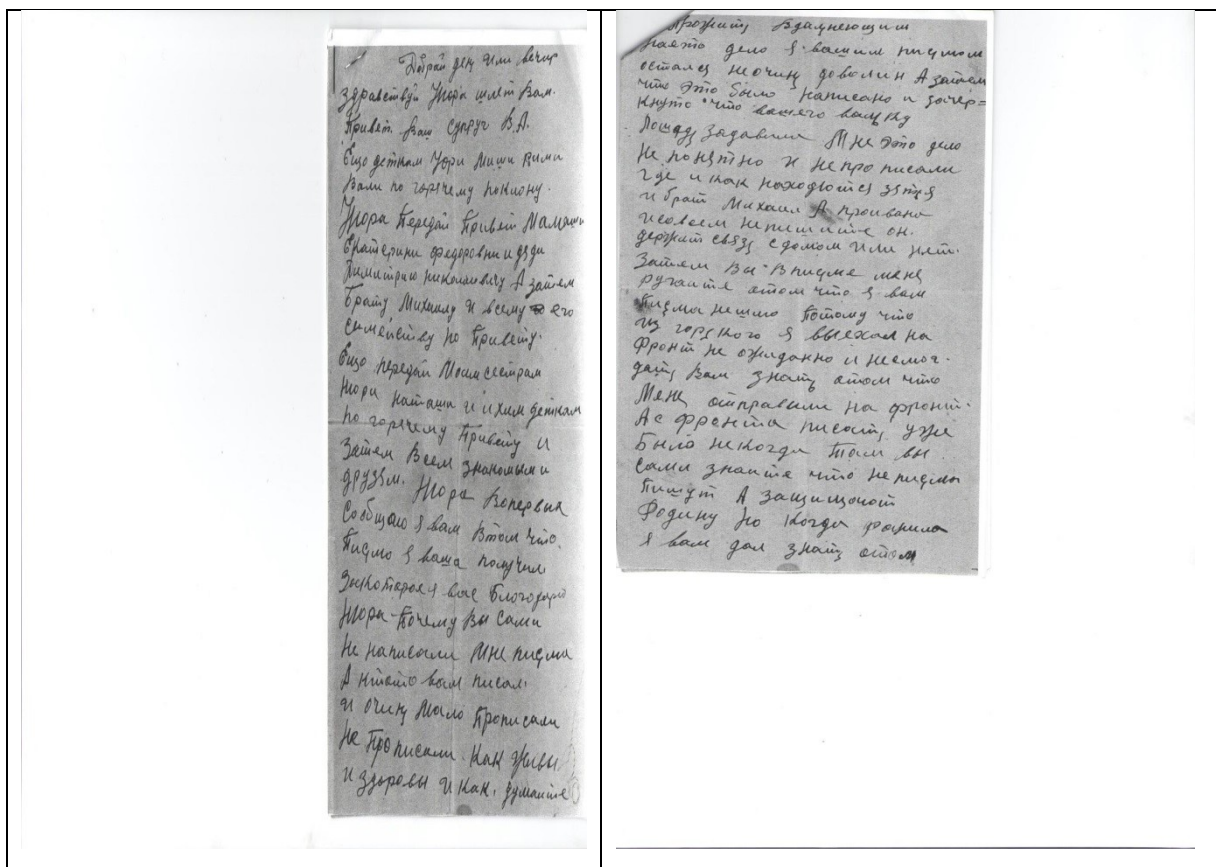 Добрай день или вечир
здравствуй Нюра шлет Вам.
Привет Ваш супруг В.А.
Ещо деткам Юри Миши Вими
Вали по горячему поклону.
Нюра Передай Привет Мамаши
Екатерини федоровни и дяди
Димитрию николаевичу А затем
Брату Михаилу И всему его
семейству по Привету.
Ещо передай Моим сестрам
Нюри наташи и ихим деткам
по горячему Привету и
Затем Всем знакомым и
друзям. Нюра Вопервых
Сообщаю я вам Втом что.
Писмо я ваша получил
Закоторая я вас Благодарю
Нюра Почему Вы сами
Не написали Мне писма
А ктото вам писал
И очинь Мало Прописали
Не Прописали. Как Живы
и здоровы И как. думаите
Прожить Вдалнеющим
наето дело я вашим писмом
остался неочинь доволин А затем
что это было написано и зачер=
кнуто что вашего
Лошадь Задавила Мне это дело
Не понятно И непрописали
где и как находются зятья
и брат Михаил А проивана
исовсем непишите он.
держит связь сдомом или нет.
Затем Вы Вписме меня
ругаите отом что я вам
Писма нешлю Потому что
из горского я выехал на
Фронт не ожиданно и несмог.
дать Вам знать отом что
Меня отправили на фронт.
Ас фронта писать уже
Было некогда Там вы
сами знаите что неписмы
Пишут А защищают
Родину но когда ранило
я вам дал знать отом